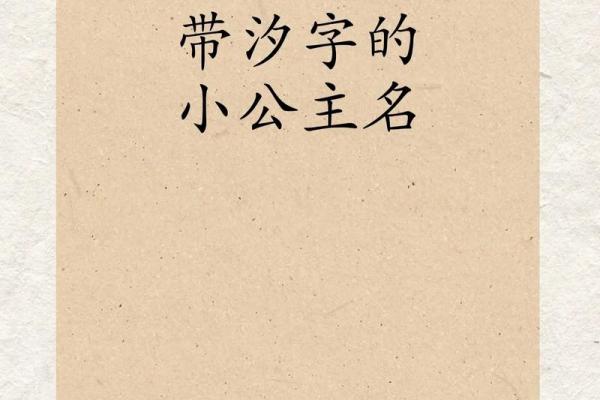 带汐字的
小公主名